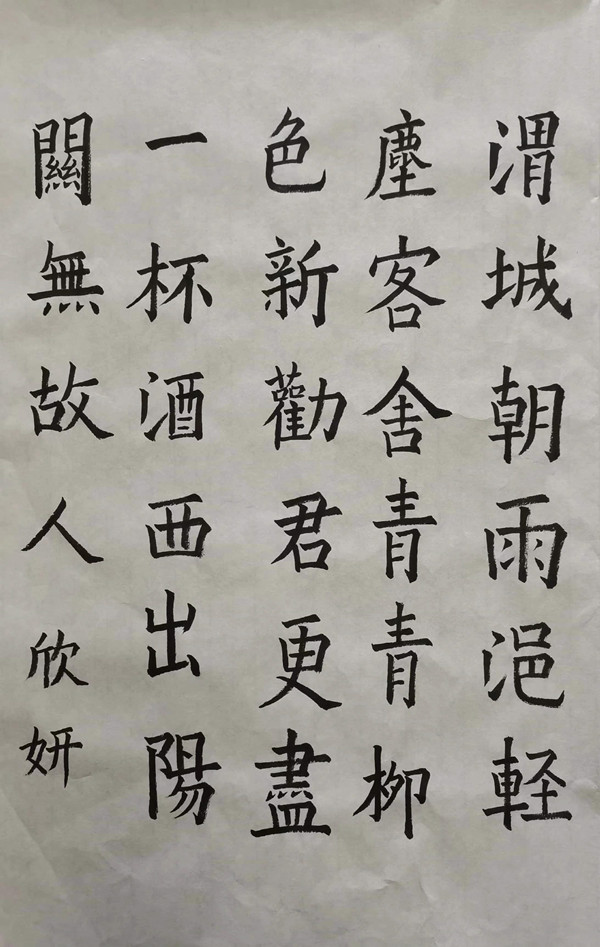 渭城朝雨浥軽
塵客舎青青柳
色新勸君更盡
一杯酒西出陽
關無故人欣妍